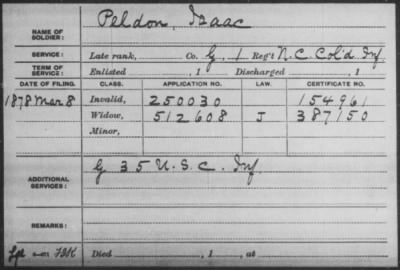 NAME OF SOLDIER: Peldon, Isaac
SERVICE: Late rank, Co. G, 1 Reg't N.C. Col'd Inf
TERM OF SERVICE: Enlisted , 1 Discharged , 1
DATE OF FILING. CLASS. APPLICATION NO. LAW. CERTIFICATE NO.
1878 Mar 8 Invalid, 250030 154961
Widow, 512608 J 387150
Minor,
ADDITIONAL SERVICES: G 35 U.S.C. Inf
REMARKS:
Died , 1 , at